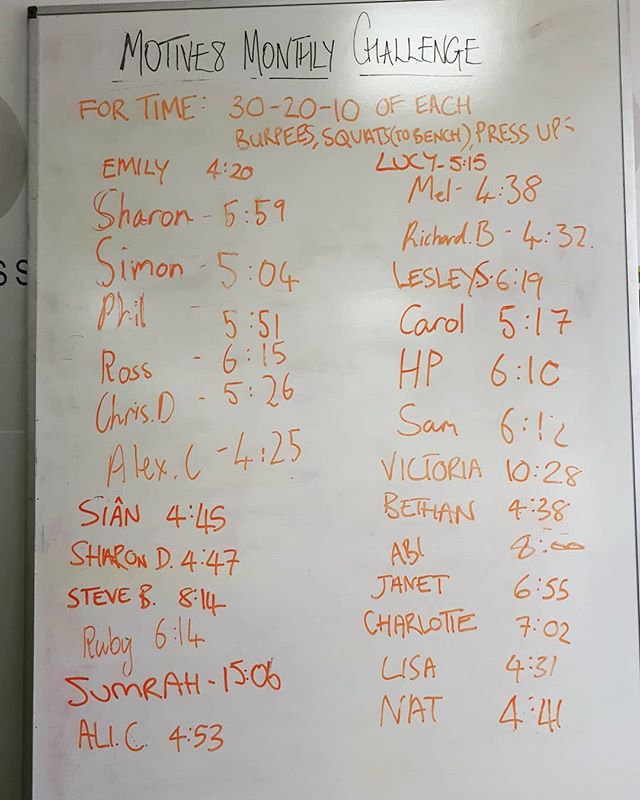 MOTIVE8 MONTHLY CHALLENGE
FOR TIME: 30-20-10 OF EACH
BURPEES, SQUATS(TO BENCH), PRESS UPS
EMILY 4:20
Sharon - 5:59
Simon - 5:04
Phil 5:51
Ross - 6:15
Chris.D - 5:26
Alex.C - 4:25
SIÂN 4:45
SHARON D. 4:47
STEVE B. 8:14
Ruby 6:14
SUMRAH - 15:06
ALI.C. 4:53
LUCY - 5:15
Mel - 4:38
Richard.B - 4:32.
LESLEY S 6:19
Carol 5:17
HP 6:10
Sam 6:12
VICTORIA 10:28
BETHAN 4:38
ABI 8:00
JANET 6:55
CHARLOTTE 7:02
LISA 4:31
NAT 4:41
SS